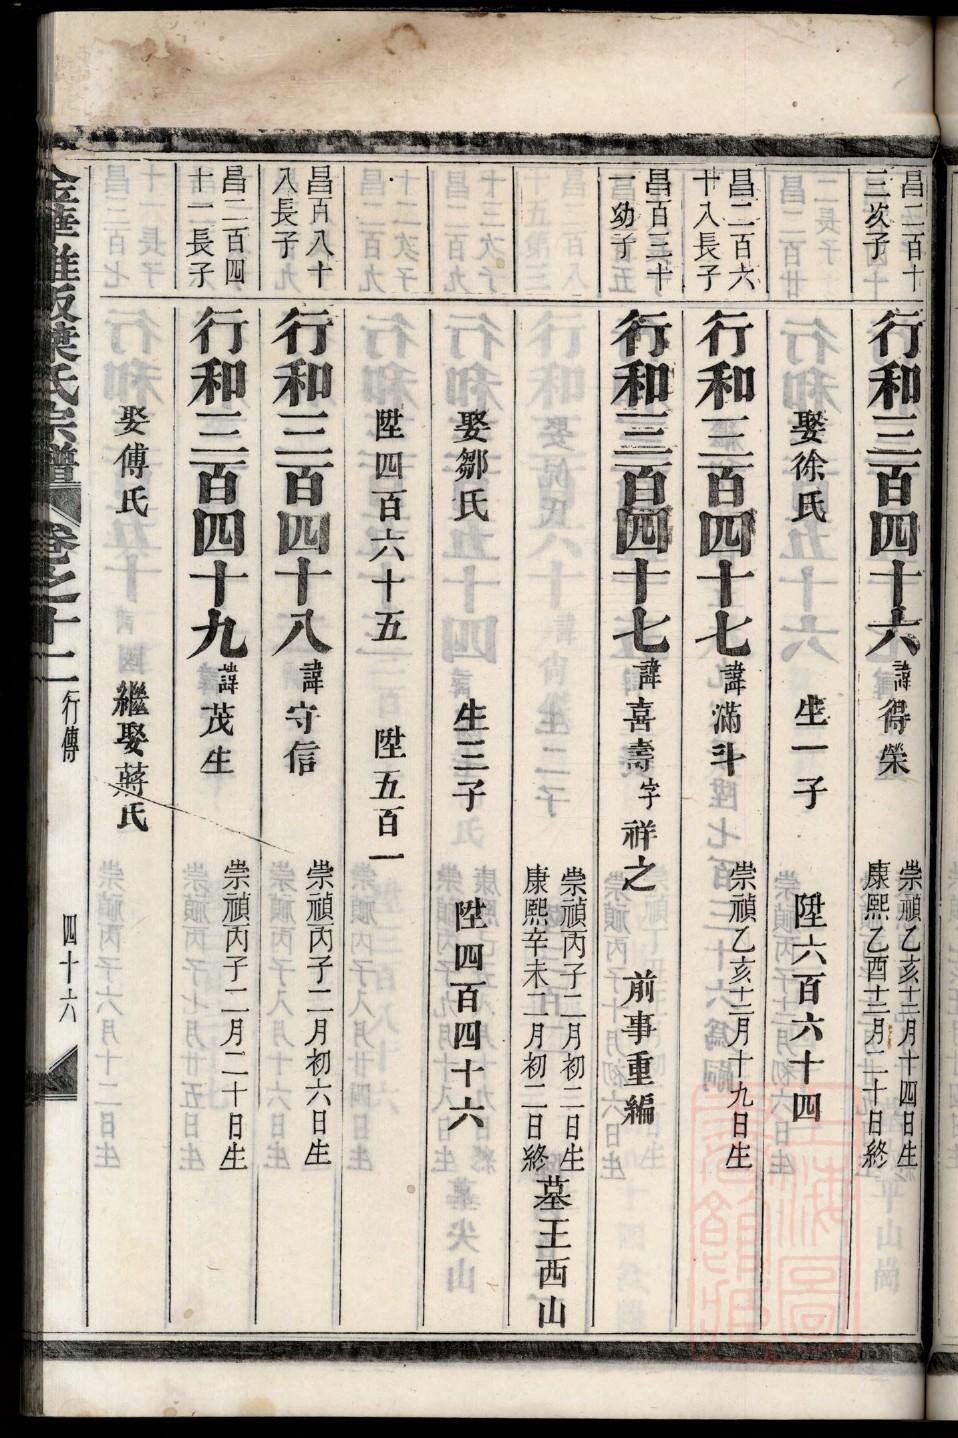 昌二百十
三次子
行和三百四十六 諱得榮
崇禎乙亥十二月十四日生
康熙乙酉十二月二十日終
娶徐氏 生一子 陞六百六十四
昌二百六
十入長子
行和三百四十七 諱滿斗
崇禎乙亥十二月十九日生
昌百三十
一幼子
行和三百四十七 諱喜壽 字祥之 前事重編
崇禎丙子二月初二日生
康熙辛未二月初二日終
墓王西山
娶鄒氏 生三子 陞四百四十六
陞四百六十五 陞五百一
昌百八十
八長子
行和三百四十八 諱守信
崇禎丙子二月初六日生
昌二百四
十二長子
行和三百四十九 諱茂生
崇禎丙子二月二十日生
娶傅氏 繼娶蔣氏
葉氏宗譜 卷之十二 行傳 四十六